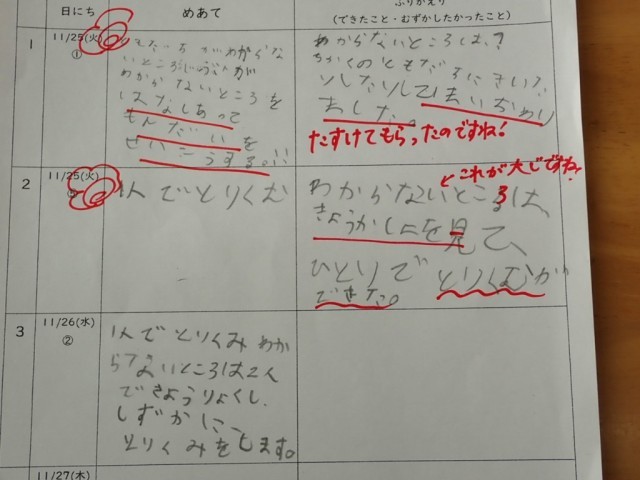 日にち めあて ふりかえり
(できたこと・むずかしたかったこと)
1
11/25(火)
①
ともだちがわからな
いところじぶんが
わからないところを
はなしあって
もんだいを
せいこうする。
わからないところは、?
ちかくのともだちにきいた
りしたりして
ました。
たすけてもらったのですね!
2
11/25(火)
1人でとりくむ
→これが大じですね!
わからないところは、
きょうかしょを見て、
ひとりでとりくむが
できた。
3
11/26(水)
②
1人でとりくみわか
らないところは2人
できょうりょくし、
しずかに、
とりくみをします。
11/27(木)